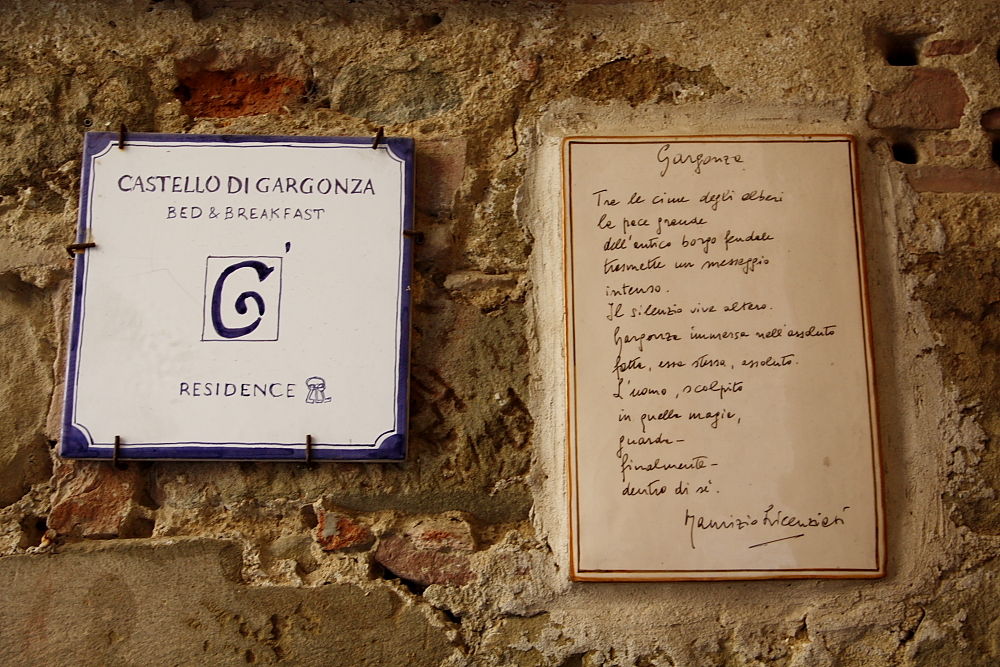 CASTELLO DI GARGONZA
BED & BREAKFAST
G'
RESIDENCE
Gargonza
Tra le cime degli alberi
la pace grande
dell'antico borgo feudale
trasmette un messaggio
intenso.
Il silenzio vive altero.
Gargonza immersa nell'assoluto
fatta, essa stessa, assoluto.
L'uomo, scolpito
in quella magia,
guarda-
finalmente-
dentro di sè.
Maurizio